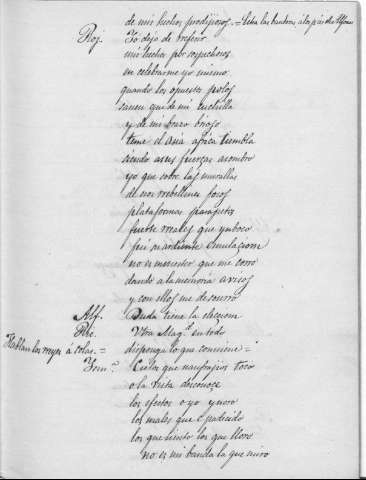 de mis hechos prodijiosos. = Echa las bandera á los piés de Alfonso
Roj. Yo dejo de referir
mis hechos por sospechoso
en celebrarme yo mismo
quando los opuestos polos
saven que de mi cuchilla
y de mi brazo brioso
teme el Asia africa tiembla
siendo a sus fuerzas asombro
yo que sobre las murallas
de los revellines fosos
plataformas parapetos
fuerte reales que
fui su ardiente emulacion
no es menester que me corro
dando a la memoria avisos
y con ellos me desorro
Alf. Duda tiene la eleccion
Rei. Vtra Mag.d en todo
Hablan los reyes á solas = disponga lo que conviene =
Ysm.a Cielos que naufragios toco
o la vista desconoce
los efectos o yo ygnoro
los males que é padecido
los que siento los que lloro
no es mi banda la que miro